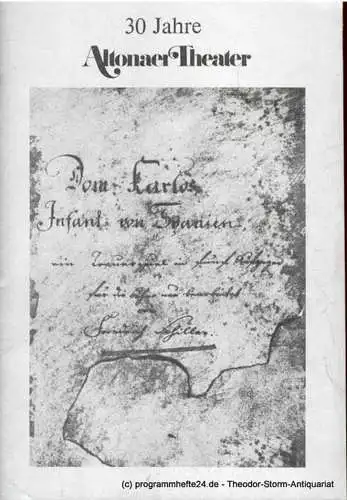 30 Jahre
Altonaer Theater
Dom Karlos
Infant von Spanien,
ein Trauerspiel in fünf Aufzügen
für die Bühne neu bearbeitet
von
Friedrich Schiller.
(c) programmhefte24.de - Theodor-Storm-Antiquariat